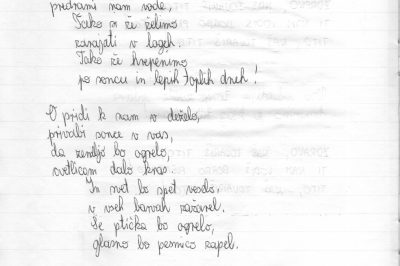 pedrami nam vode,
Tako si že želimo
zarajati v logeh.
Tako že hrepenimo
po soncu in lepih toplih dneh!
O pridi k nam v deželo,
privabi sonce v vas,
da zemljo bo ogrelo,
cvetlicam dalo kras.
In svet bo spet veselo,
v vseh barvah zažarel.
Še ptička bo ogrelo,
glasno bo pesmico zapel.